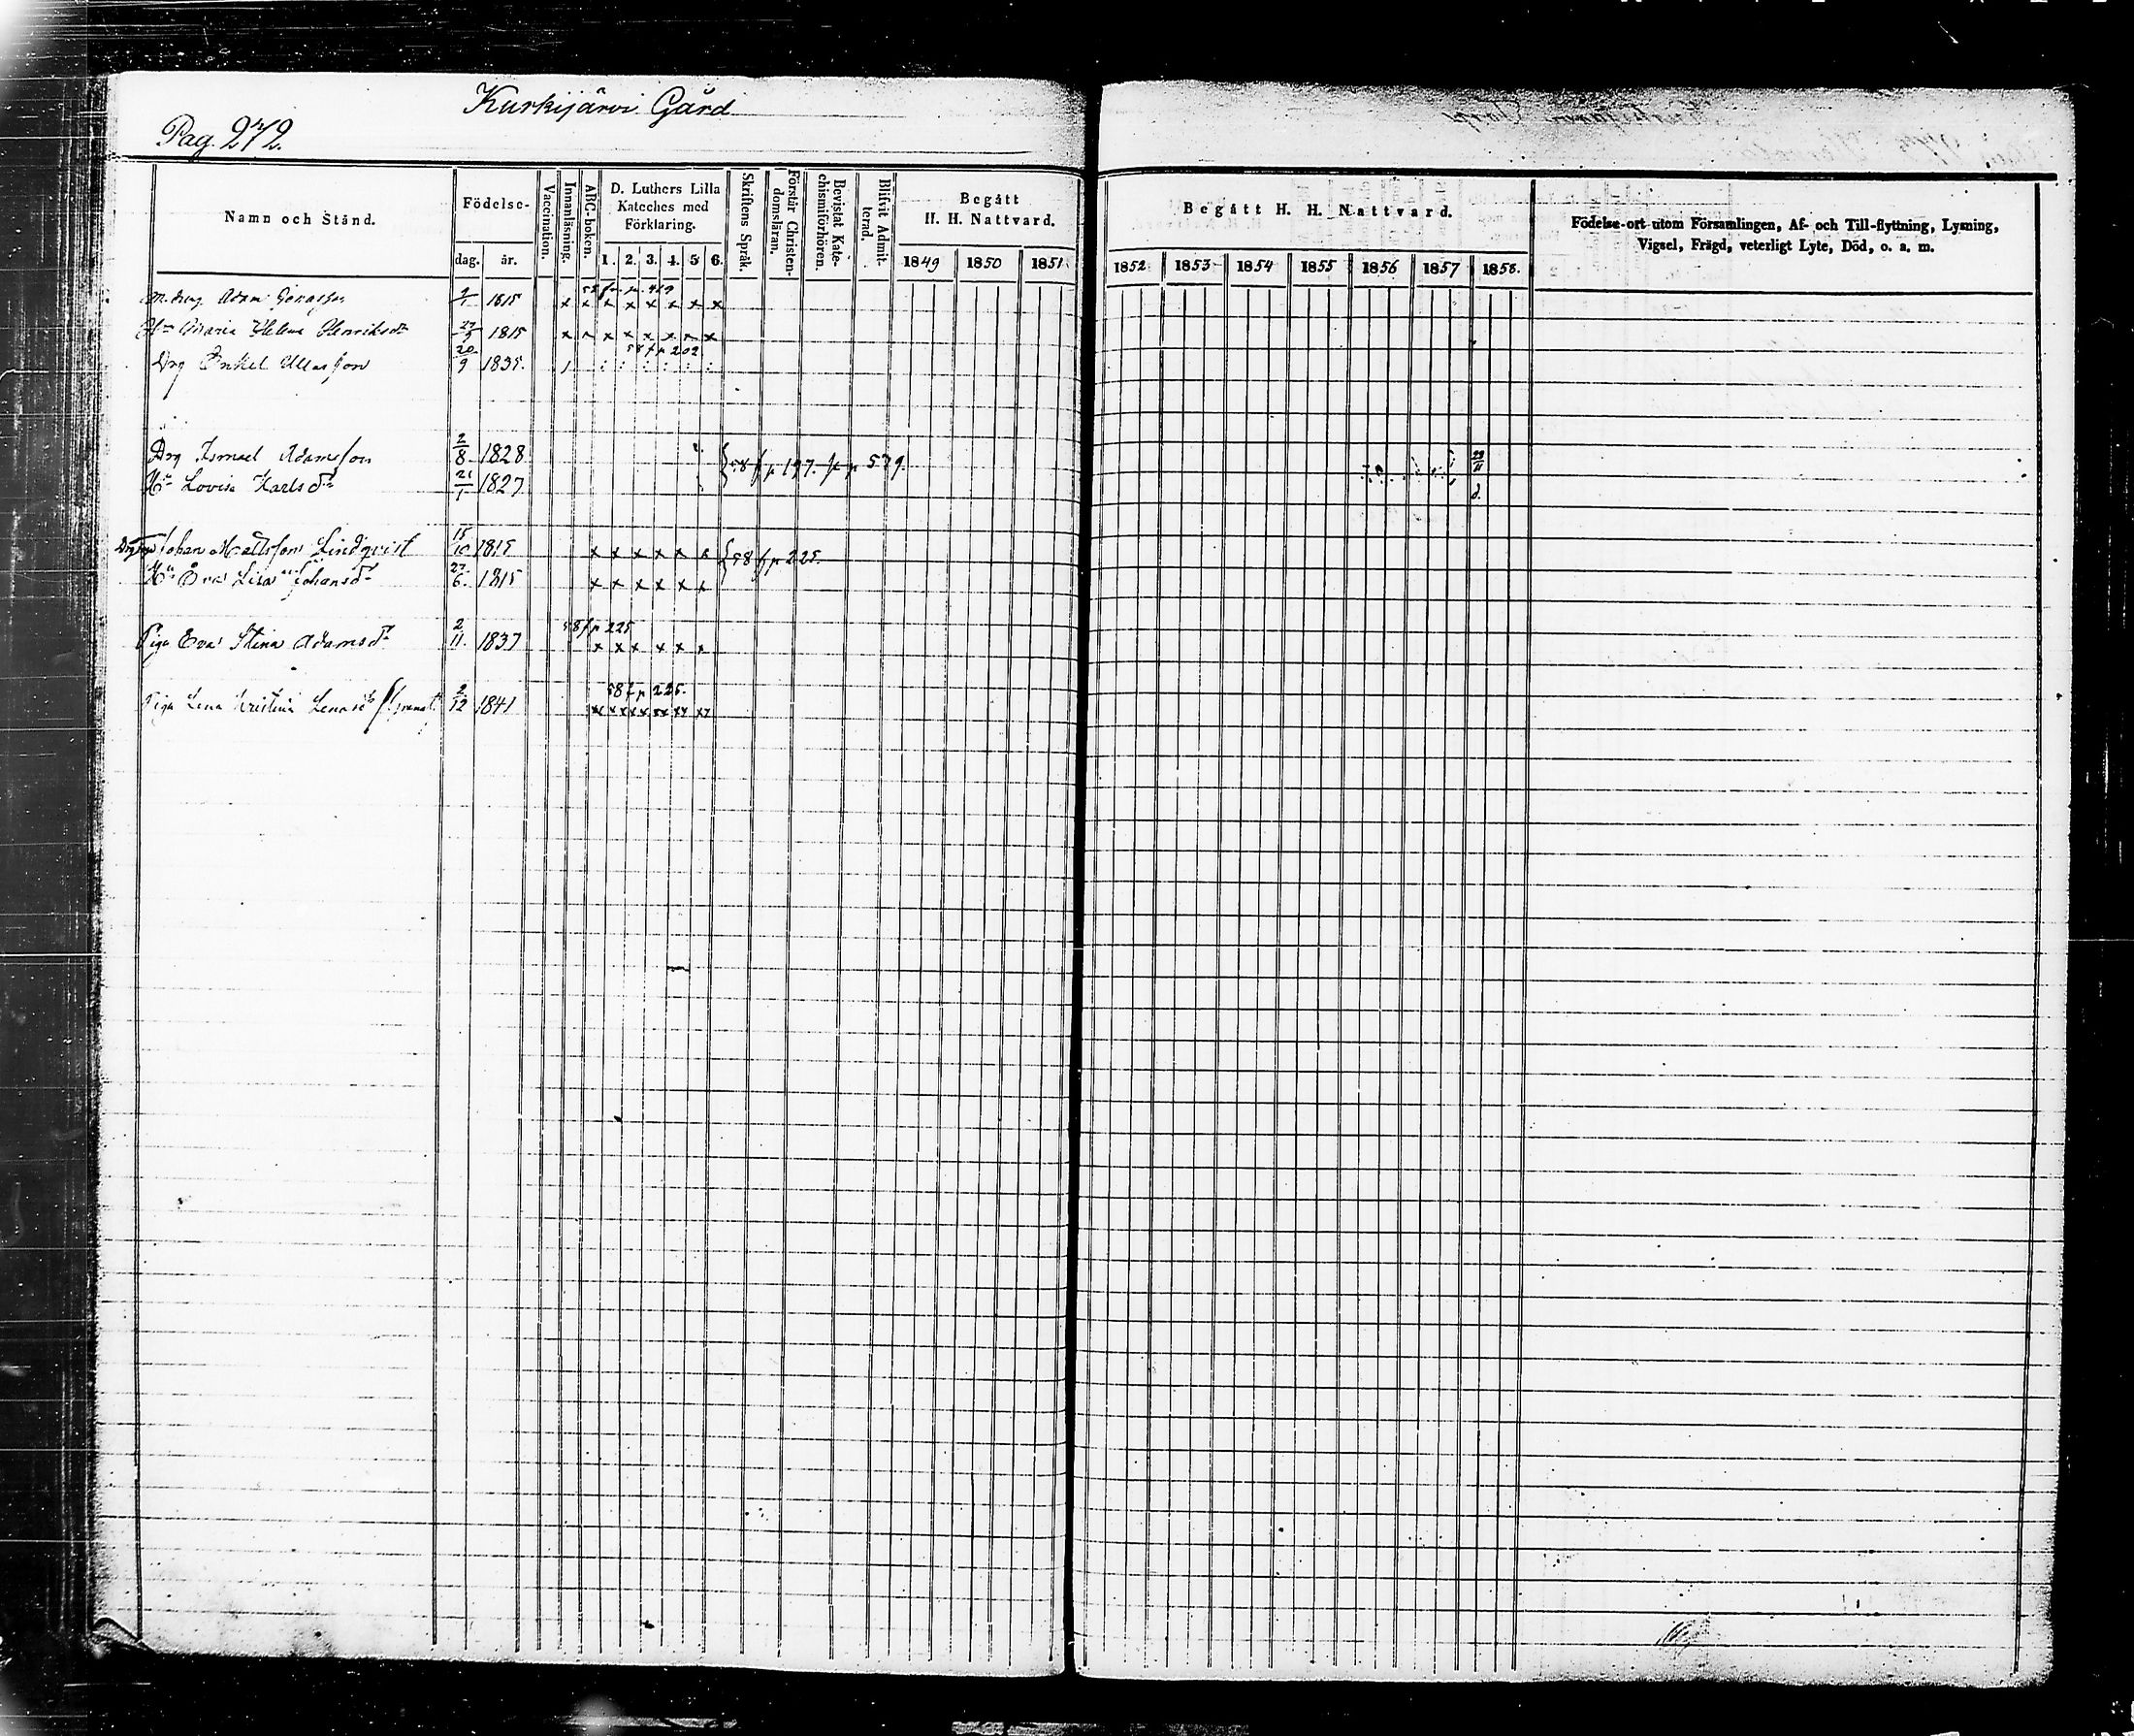 Kurkijärvi Gård
Pag. 272.
Namn och Stånd.
Födelse-
dag. år.
Vaccination.
Innanläsning.
ABC-boken.
D. Luthers Lilla
Kateches med
Förklaring.
1. 2. 3. 4. 5 6.
Skriftens Språk.
Förstår Christen-
domsläran.
Bevistat Kate-
chismiförhören.
Blifvit Admit-
terad.
Begått
H. H. Nattvard.
1849 1850 1851
Begått H. H. Nattvard.
1852 1853 1854 1855 1856 1857 1858.
Födelse-ort utom Församlingen, Af- och Till-flyttning, Lysning,
Vigsel, Frägd, veterligt Lyte, Död, o. a. m.
Adam 1815 x x x x x x x x
Hu Maria Helena Henriksdr 1815 x x x x x x x x
58 f p 202
Drg Enkel 20/9 1835.
Drg Ismael Adamsson 2/8 1828 58 f p 197. fr p 579. 29/11
Hu Lovisa Karlsdr 21/1 1827 d.
Johan Mattsson Lindqvist 15/10 1815 x x x x x x 58 f p 225.
Hu Eva Lisa Johansdr 27/6. 1815 x x x x x x
58 f p 225
Piga Eva Stina Adamsdr 2/11. 1837 x x x x x x
58 f p 225.
Piga Lena Kristina Lenasdr 2/12 1841